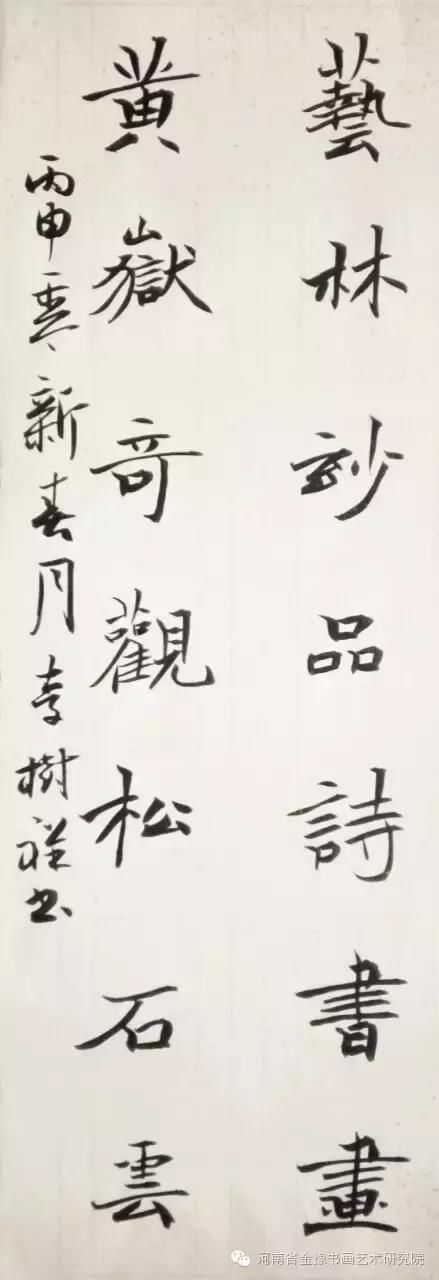 藝林妙品詩書畫
黄嶽奇觀松石雲
丙申年新春月李樹祥书
河南省金豫书画艺术研究院